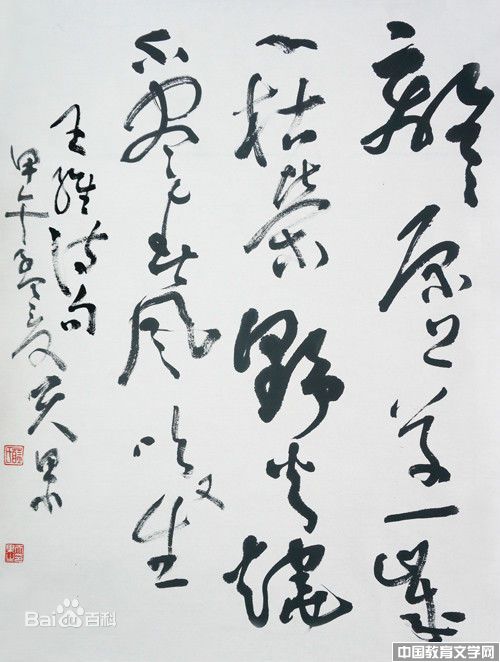 離離原上草一歲
一枯榮野火燒
不盡春風吹又生
王維詩句
甲午夏
Bai百科
中国教育文学网